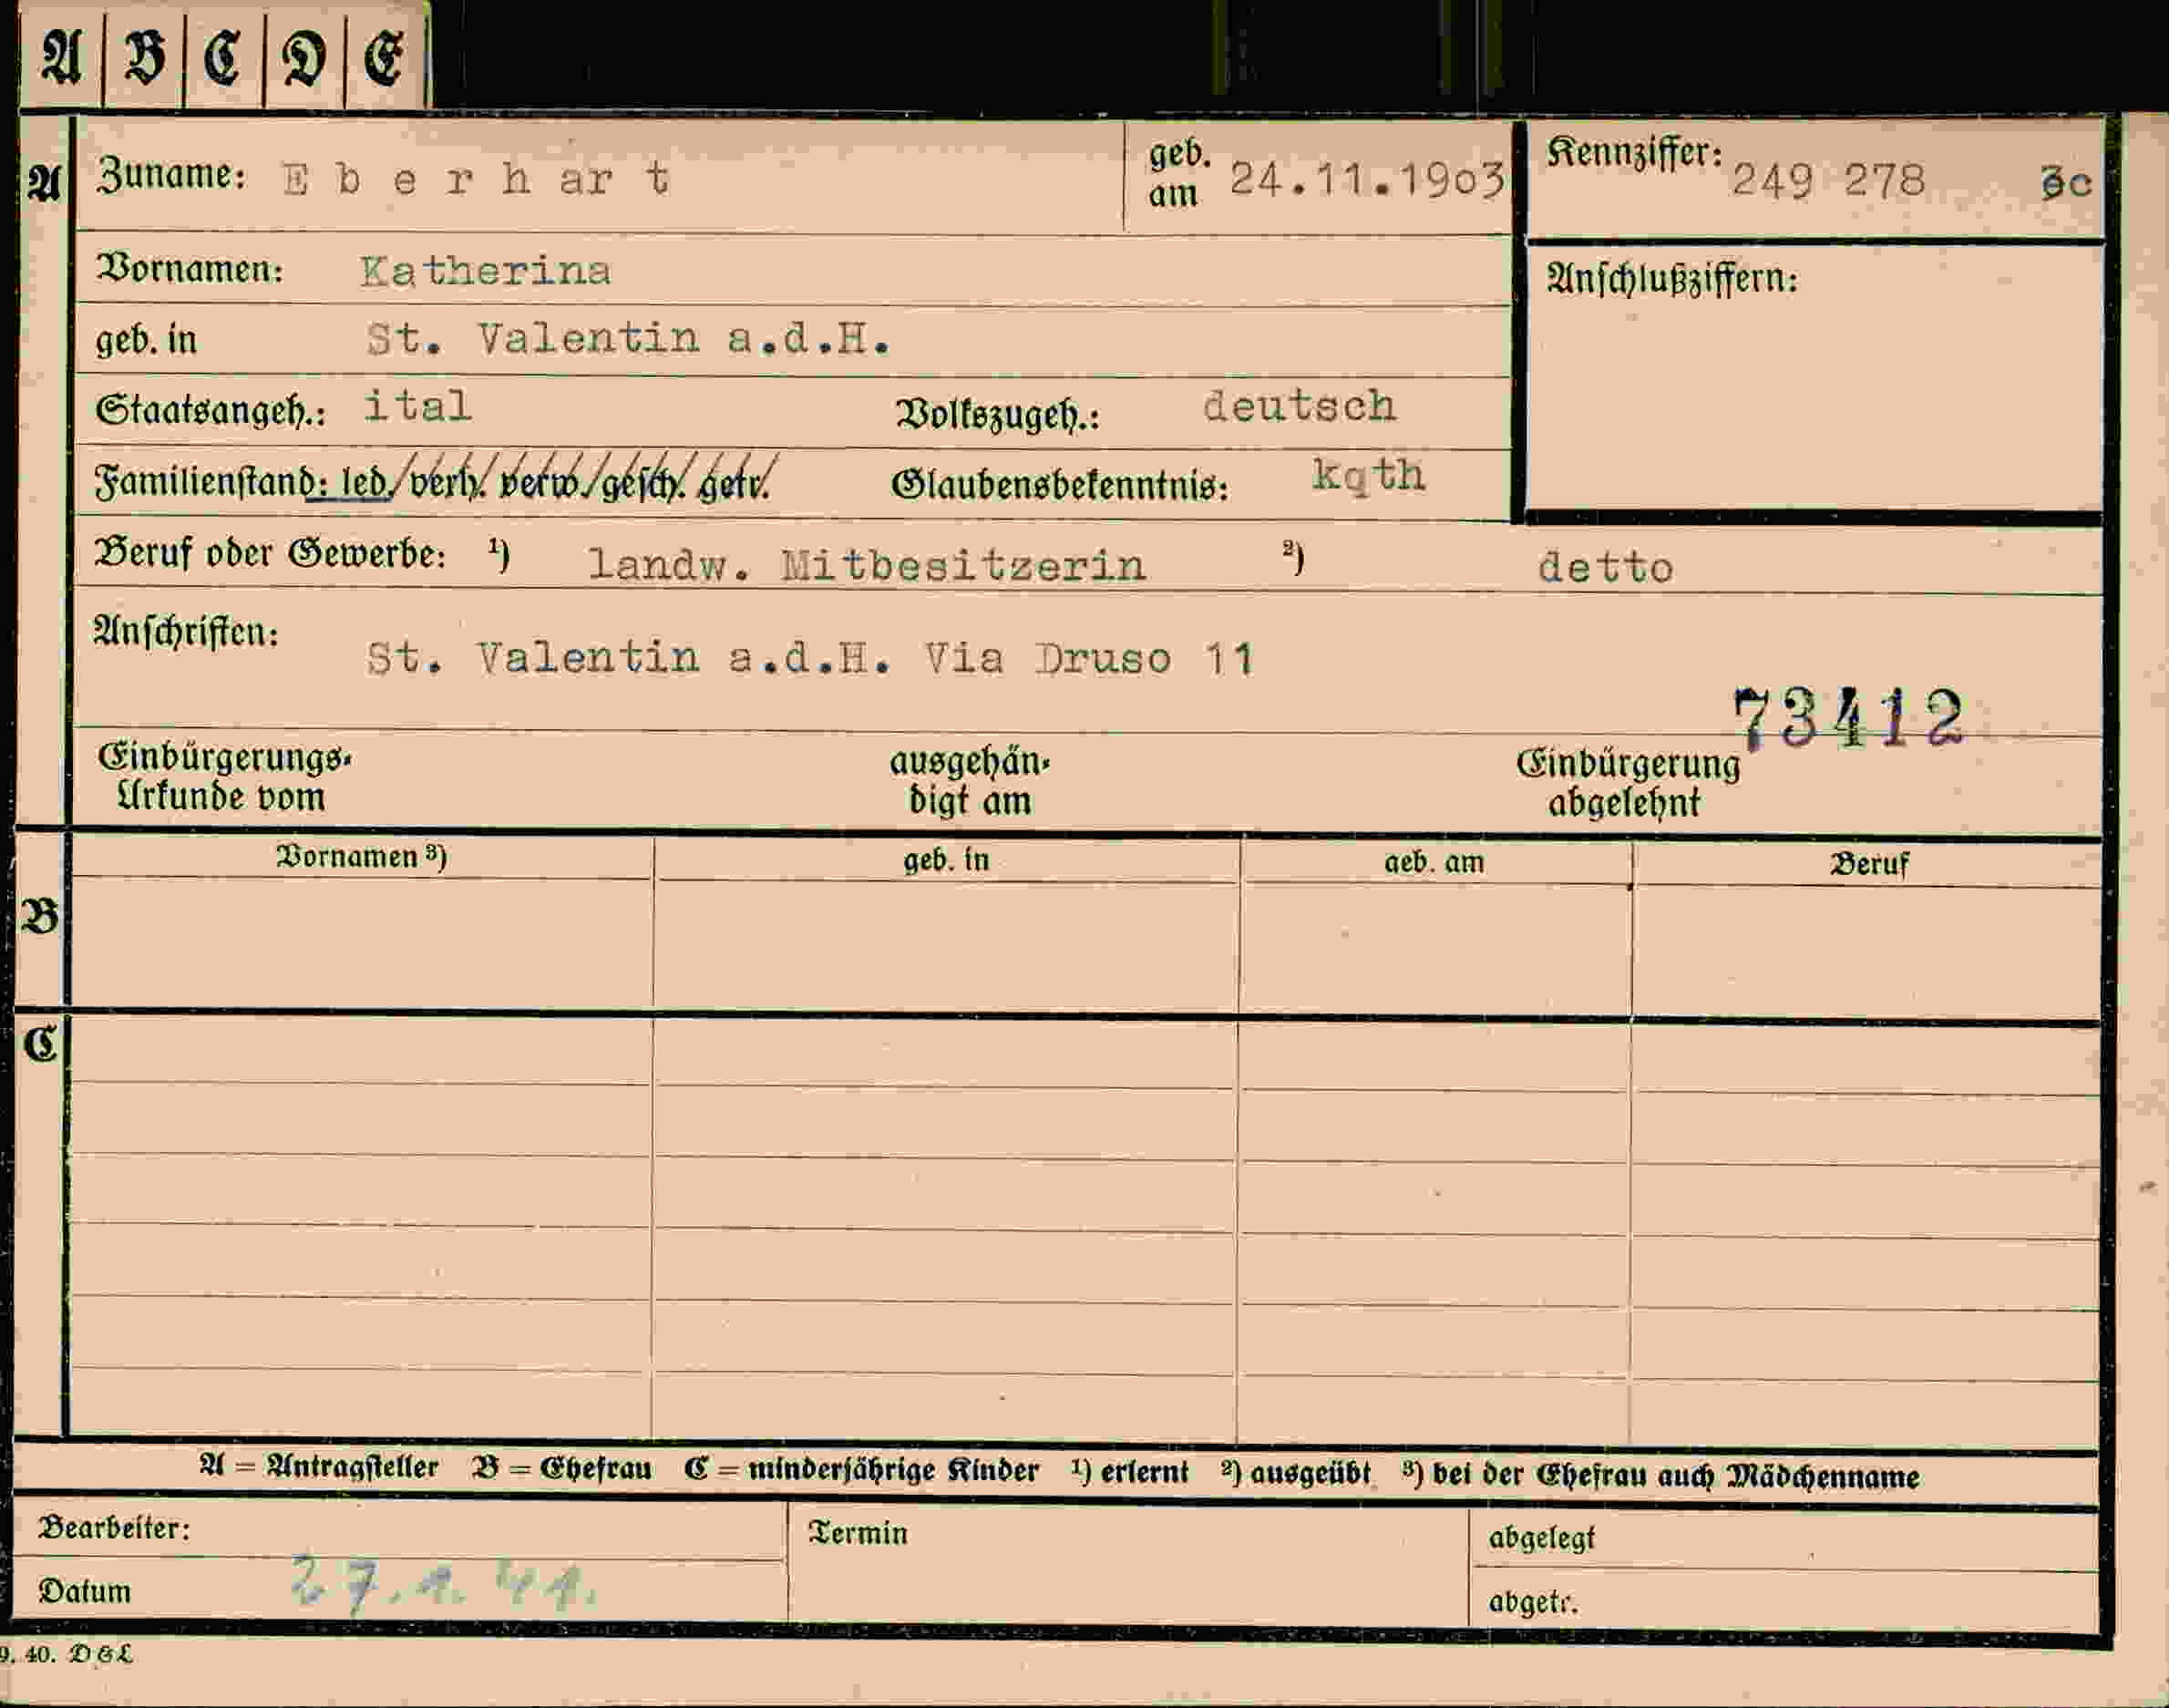 A B C D E
A Zuname: Eberhart geb. am 24.11.1903 Kennziffer: 249 278 3c
Vornamen: Katherina
Anschlußziffern:
geb. in St. Valentin a.d.H.
Staatsangeh.: ital Volkszugeh.: deutsch
Familienstand: led./verh./verw./gesch./getr. Glaubensbekenntnis: kath
Beruf oder Gewerbe: ¹) landw. Mitbesitzerin ²) detto
Anschriften:
St. Valentin a.d.H. Via Druso 11
73412
Einbürgerungs-Urkunde vom ausgehändigt am Einbürgerung abgelehnt
Vornamen ³) geb. in geb. am Beruf
B
C
A = Antragsteller B = Ehefrau C = minderjährige Kinder ¹) erlernt ²) ausgeübt ³) bei der Ehefrau auch Mädchenname
Bearbeiter: Termin abgelegt
Datum 27.1.41. abgetr.
9. 40. D & L